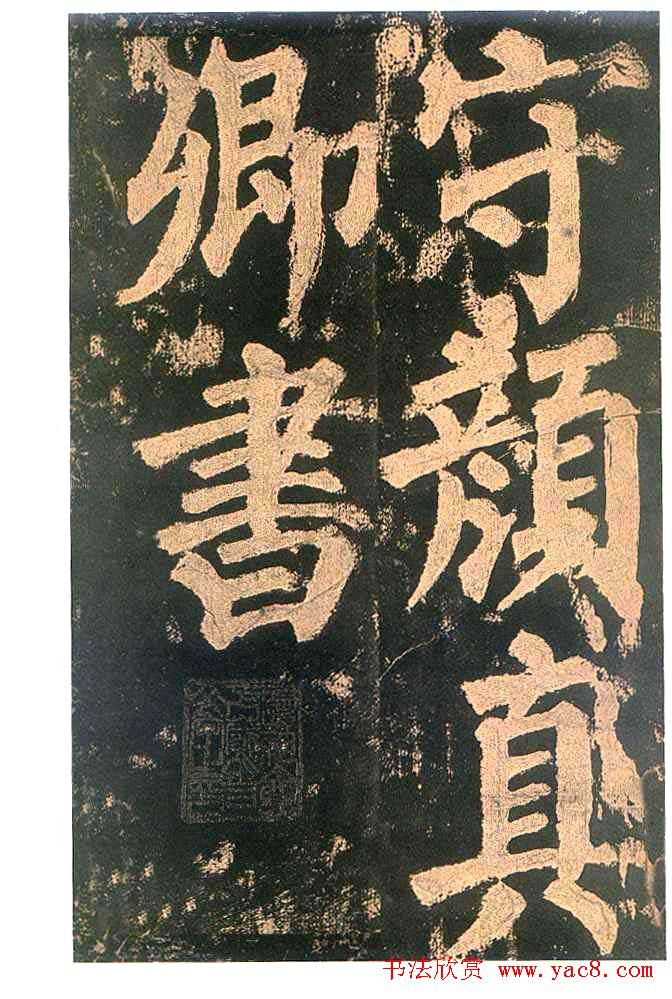 守顏真
卿書
书法欣赏 www.yac8.com